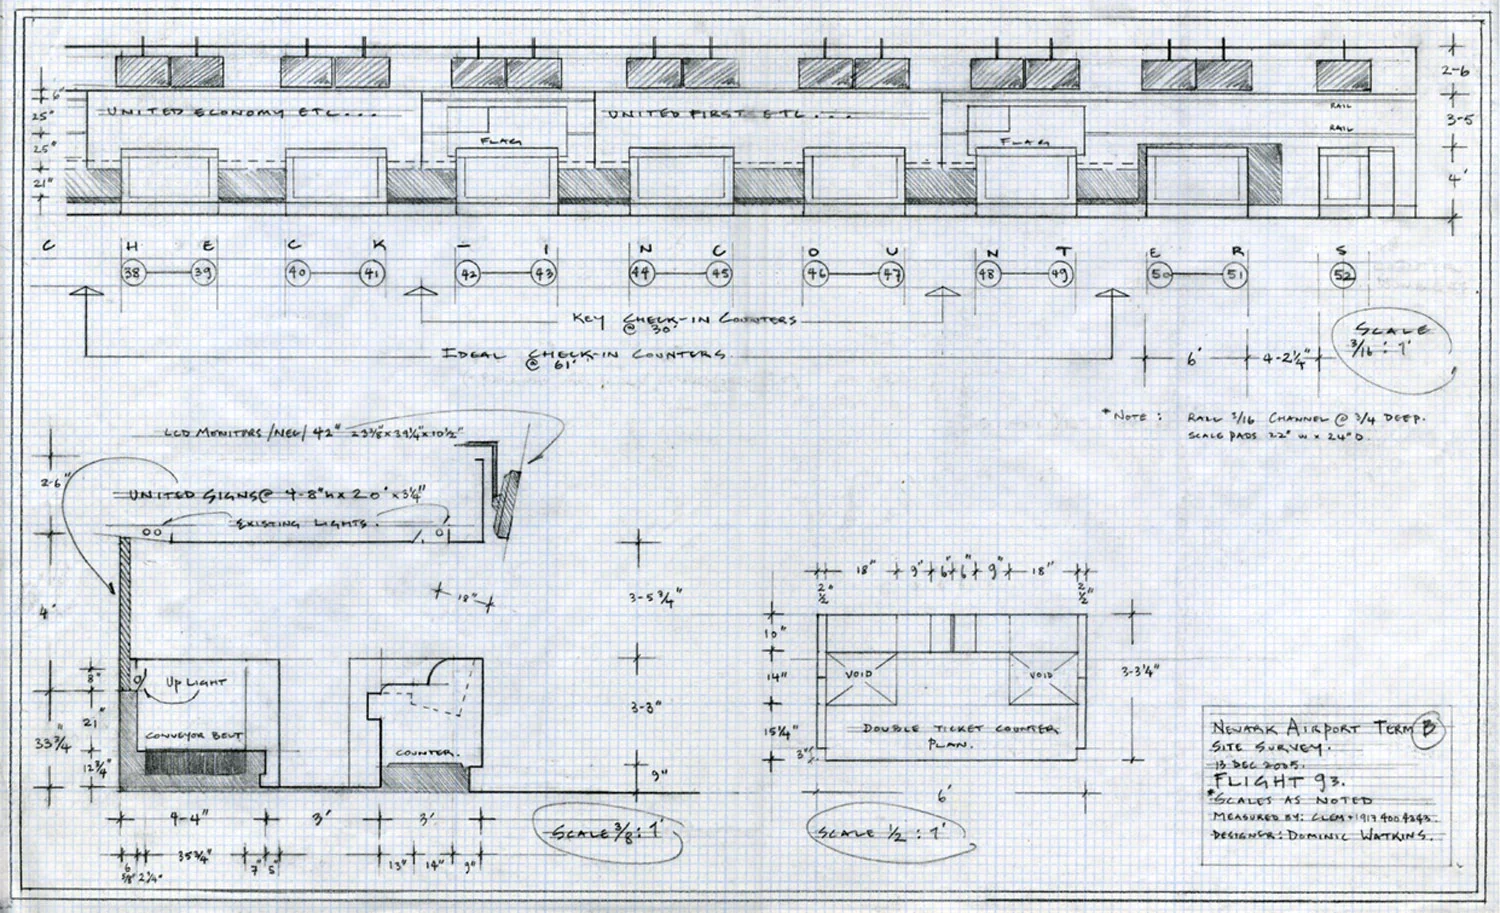 2-6
6"
RAIL
25"
UNITED ECONOMY ETC...
UNITED FIRST ETC...
3-5
RAIL
25"
FLAG
FLAG
21"
4'
C H E C K - I N C O U N T E R S
38 39 40 41 42 43 44 45 46 47 48 49 50 51 52
KEY CHECK-IN COUNTERS
@ 30'
SCALE
3/16 : 1'
IDEAL CHECK-IN COUNTERS
@ 61'
6' 4-2¼"
*NOTE : RAIL 3/16 CHANNEL @ 3/4 DEEP.
SCALE PADS 22" W x 24" D.
LCD MONITORS /NEC/ 42" 23⅜" x 39¼" x 10½"
2-6"
UNITED SIGNS @ 4-8"H x 20' x 3¼"
EXISTING LIGHTS.
18"
3-5¾"
4'
8"
UP LIGHT
21"
33¾"
CONVEYOR BELT
12¾"
COUNTER.
3-3"
9"
4-4" 3' 3'
SCALE 3/8 : 1'
35¾" 7" 5" 13" 14" 9"
2¼"
18" 9" 6" 6" 9" 18"
2½" 2½"
10"
14"
VOID VOID
3-3¼"
15¼"
DOUBLE TICKET COUNTER
PLAN.
3"
6'
SCALE ½ : 1'
NEWARK AIRPORT TERM B
SITE SURVEY.
13 DEC 2005.
FLIGHT 93.
*SCALES AS NOTED
MEASURED BY: CLEM +1 917 400 4243.
DESIGNER: DOMINIC WATKINS.